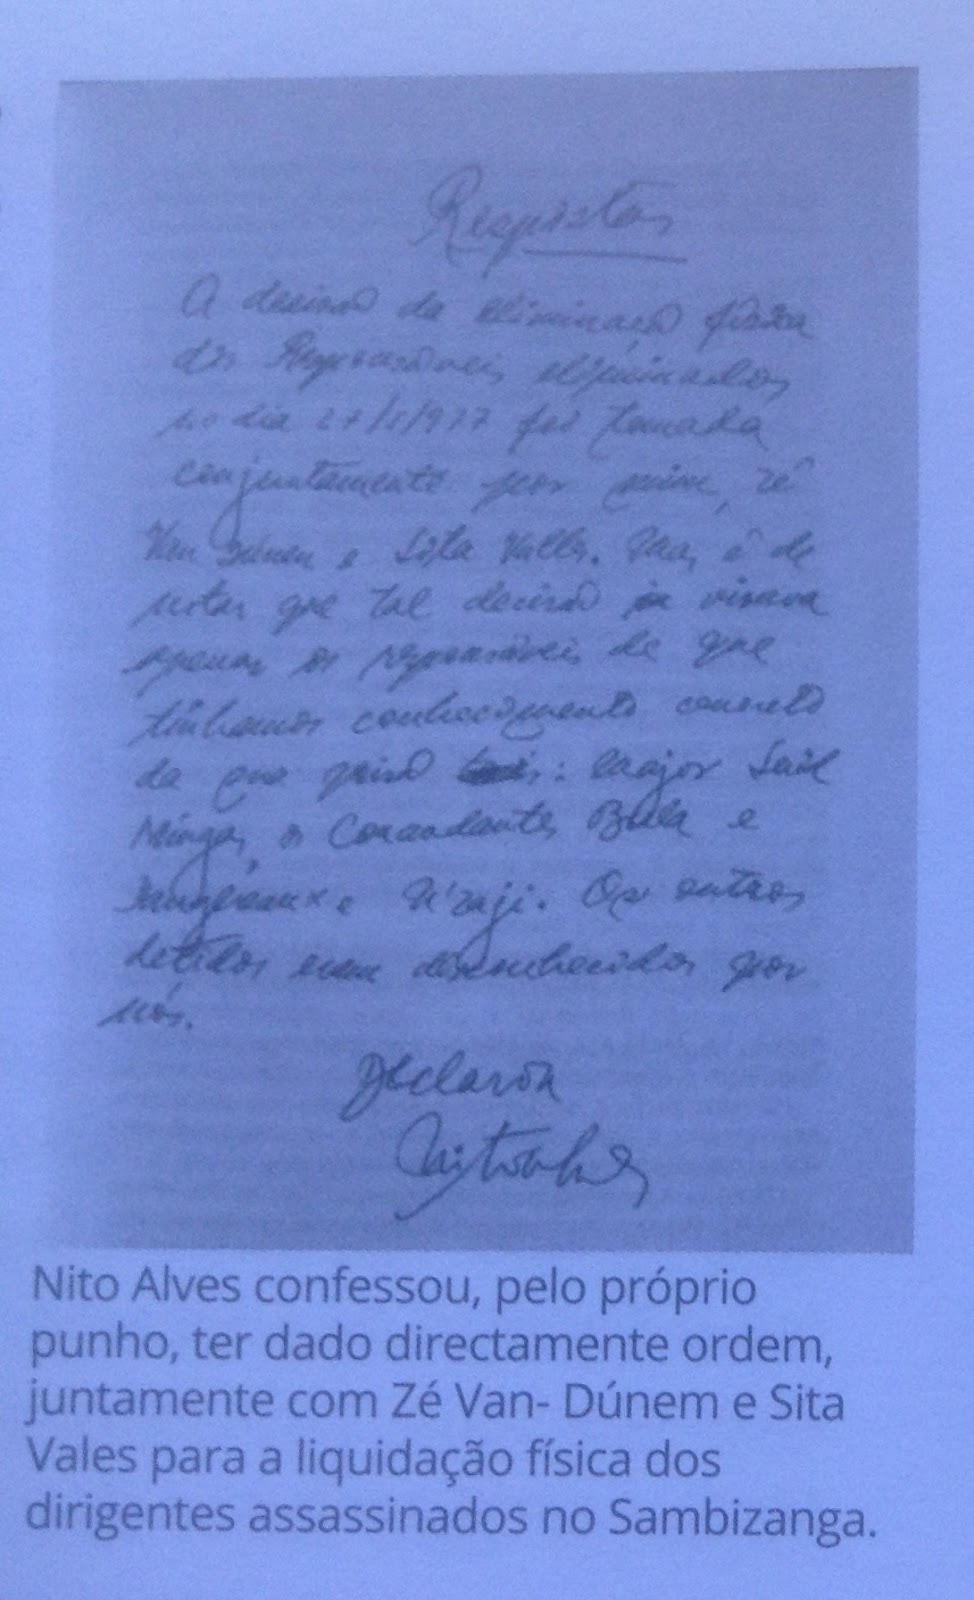 A decisão da eliminação física
dos Responsáveis eliminados
no dia 27/5/977 foi tomada
conjuntamente por mim, Zé
Van Dúnem e Sita Valles. Mas é de
notar que tal decisão visava
apenas os responsáveis de que
tínhamos conhecimento concreto
da sua prisão : Major Saíd
Mingas, os Comandantes Bula e
Dangereaux e N'zaji. Os outros
detidos eram desconhecidos por
nós.
Nito Alves confessou, pelo próprio
punho, ter dado directamente ordem,
juntamente com Zé Van- Dúnem e Sita
Vales para a liquidação física dos
dirigentes assassinados no Sambizanga.